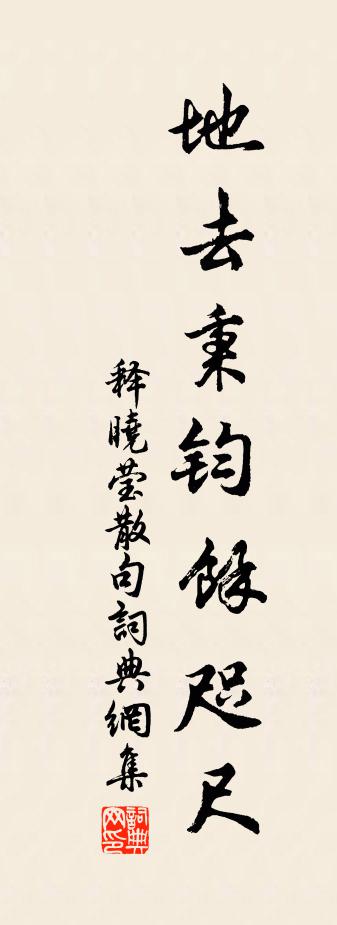 地去秉鈞餘咫尺
释曉莹散句詞典網集
詞典网印